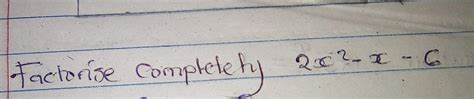 Factorise Completely 2x² - x - 6